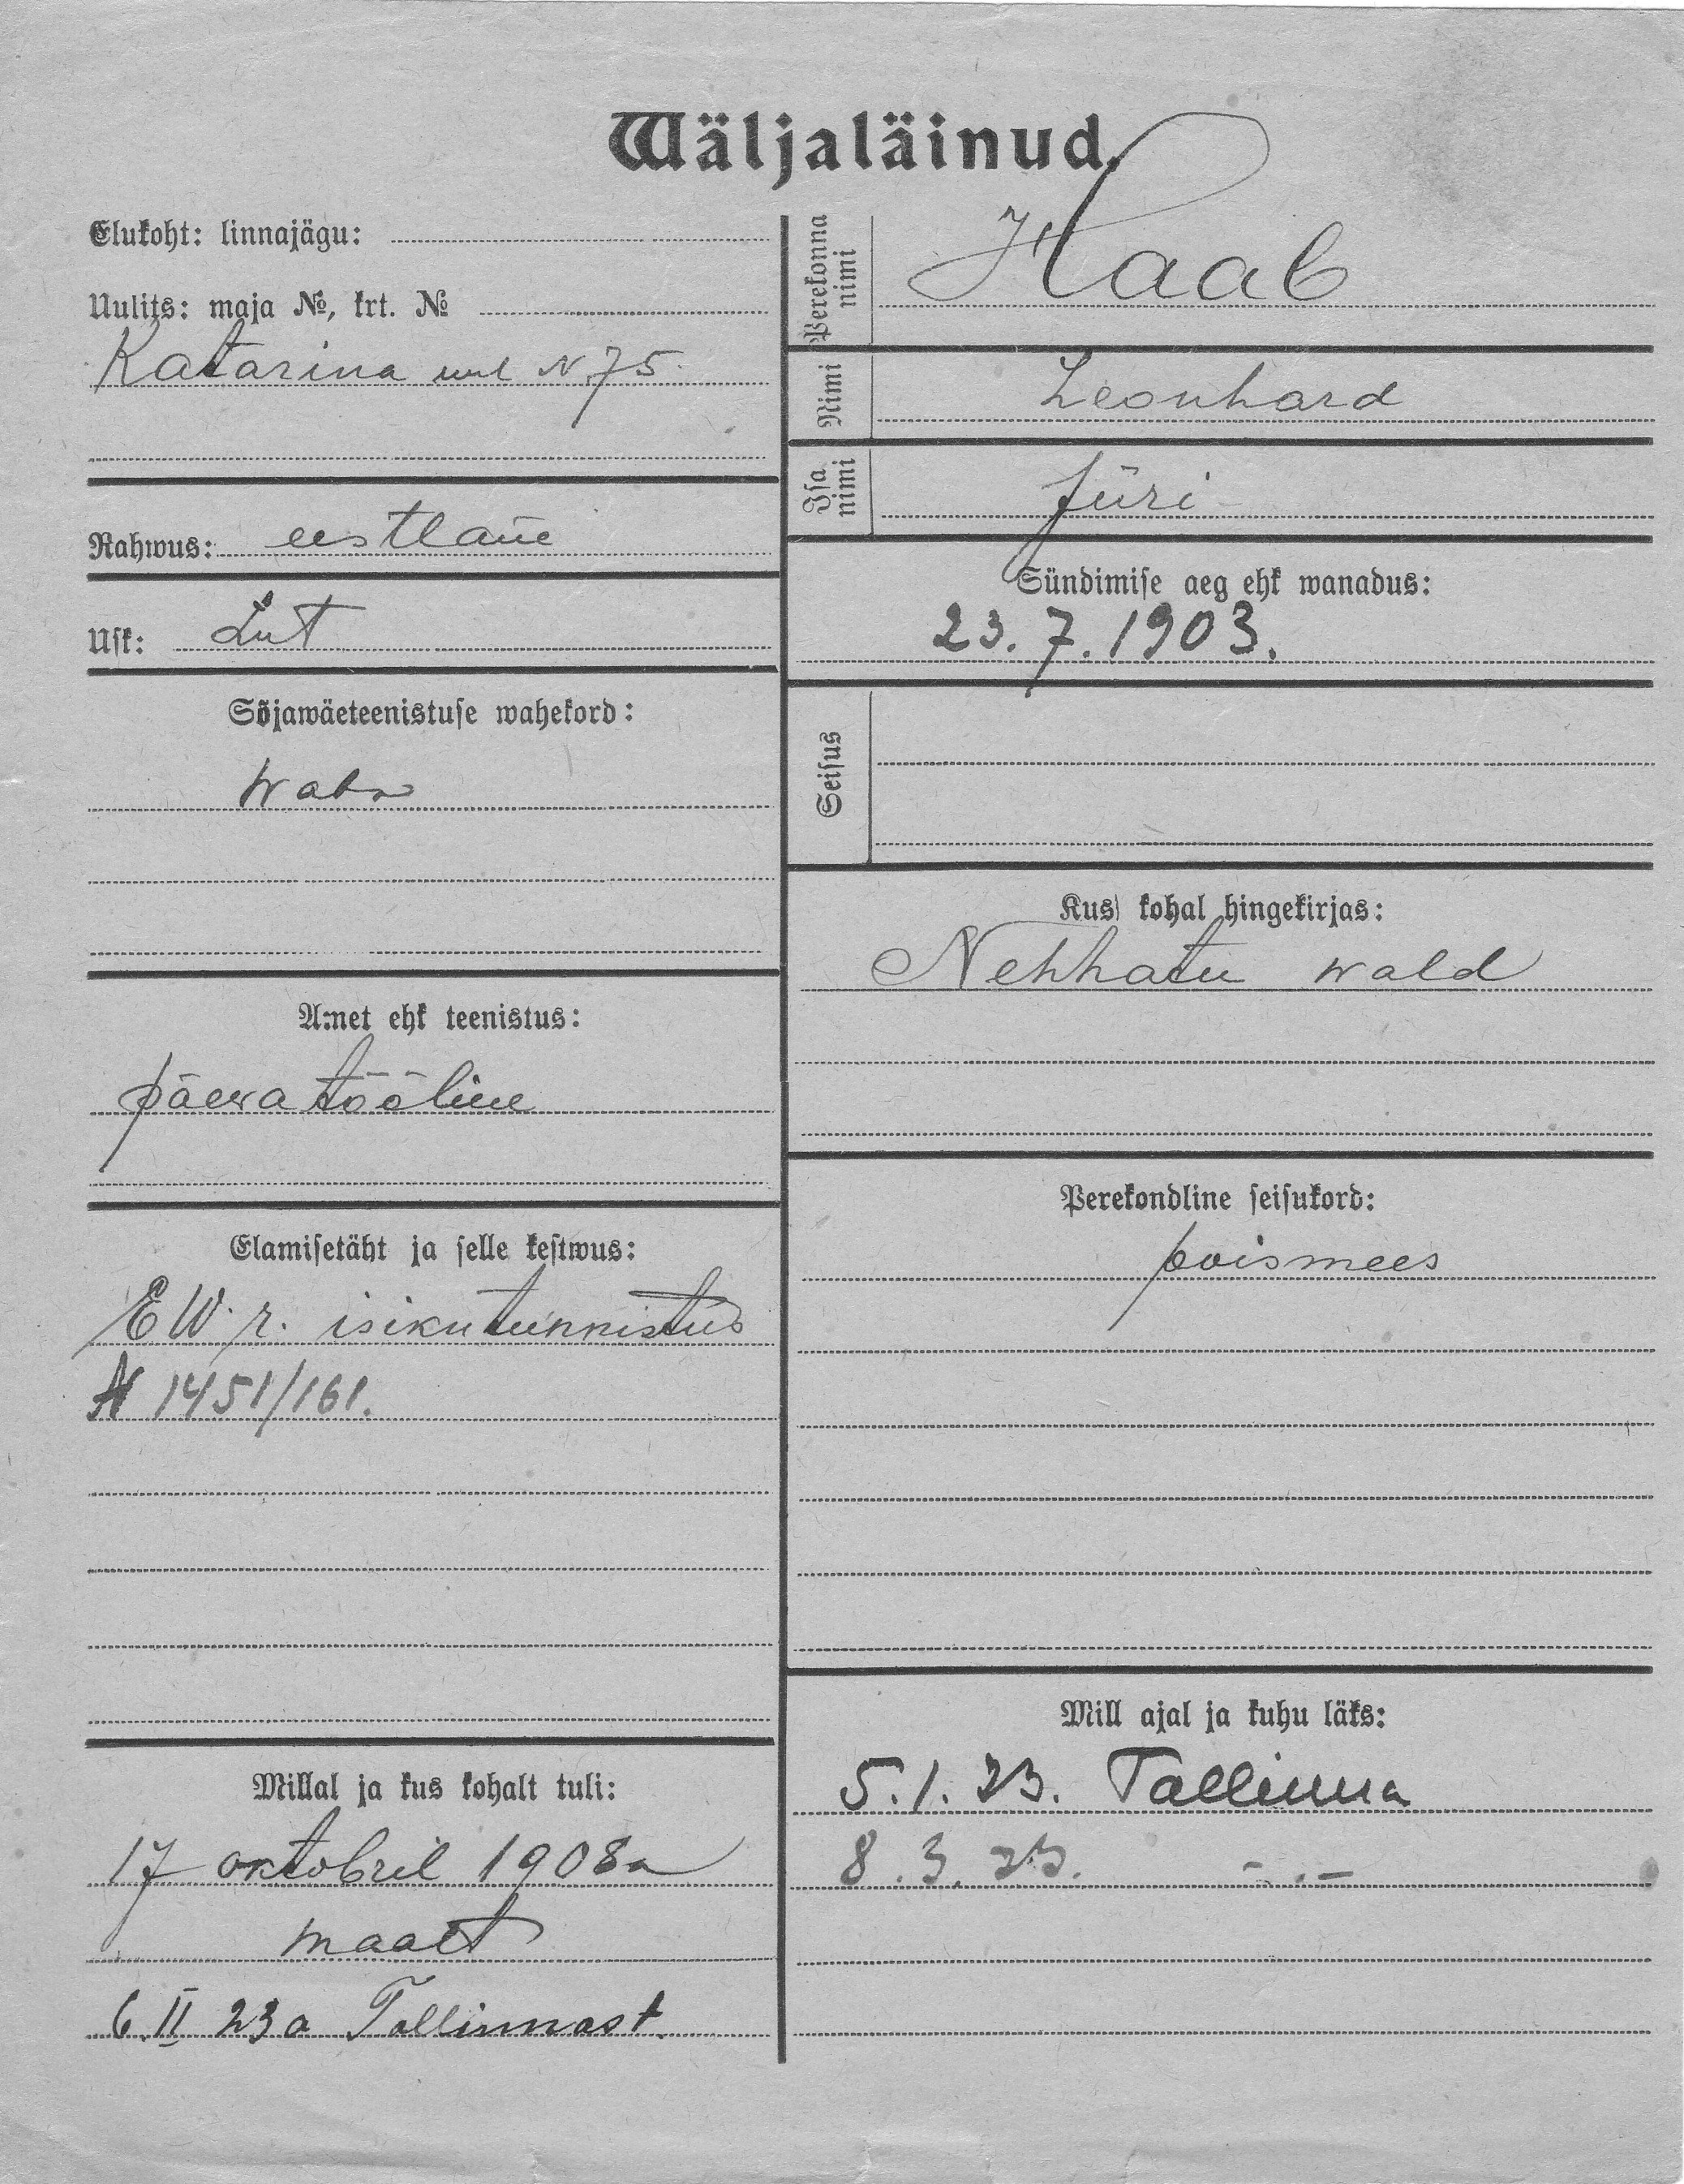 Wäljaläinud.
Elukoht: linnajägu:
Uulits: maja №, krt. №
Katarina uul N 75.
Rahwus: eestlane
Usk: Lut
Sõjawäeteenistuse wahekord:
waba
Amet ehk teenistus:
päewatööline
Elamisetäht ja selle kestwus:
E W. r. isikutunnistus
N 1451/161.
Millal ja kus kohalt tuli:
17 oktobril 1908a
maalt
6. II 23 a Tallinnast.
Perekonna nimi
Haab
Nimi
Leonhard
Isa nimi
Jüri
Sündimise aeg ehk wanadus:
23. 7. 1903.
Seisus
Kus kohal hingekirjas:
Nehhatu wald
Perekondline seisukord:
poismees
Mill ajal ja kuhu läks:
5. 1. 23. Tallinna
8. 3. 23. - . -